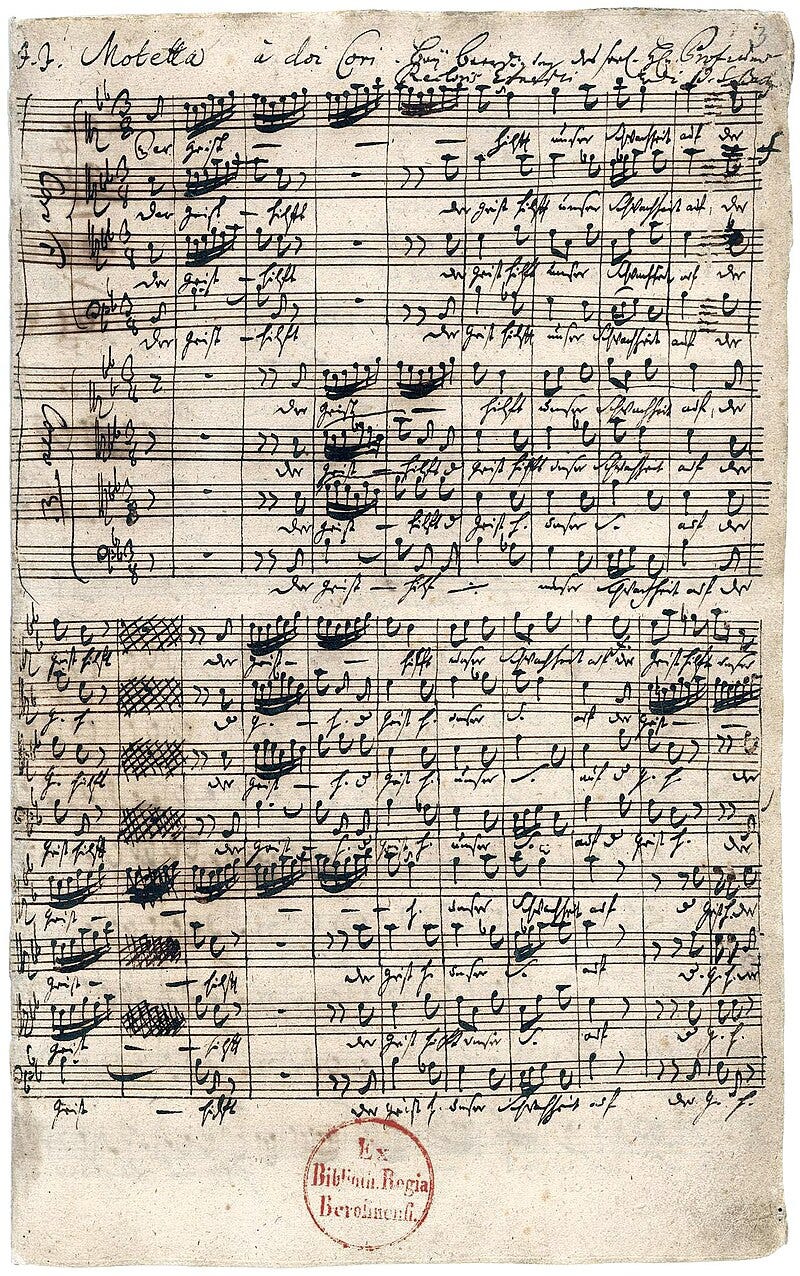 J. J. Motetta à doi Cori. bey Beerdigung des seel. Hn. Profeßoris
Rectoris Ernesti di J. S. Bach
3
Der Geist — — hilfft unser Schwachheit auf der
Der Geist — hilfft der Geist hilfft unser Schwachheit auf, der
der Geist — hilfft der Geist hilfft unser Schwachheit auf der
der Geist — hilfft der Geist hilfft unser Schwachheit auf der
der Geist — hilfft unser Schwachheit auf, der
der Geist — hilfft d Geist hilfft unser Schwachheit auf der
der Geist — hilfft d Geist h. unser S. auf der
der Geist — hilfft unser Schwachheit auf der
Geist hilfft der Geist — — hilfft unser Schwachheit auf der Geist hilfft unser
G. h. d G. — h. d Geist h. unser S. auf der Geist —
G. hilfft der Geist — h. d Geist h. unser — auf d G. h. der
Geist hilfft der Geist — h. d Geist h. unser S. auf d Geist h. der
Geist — — — — h. unser Schwachheit auf d Geist h. der
Geist — — hilfft der Geist h. unser S. auf d. G. h. der
Geist — — hilfft der Geist hilfft unser S. auf d G. h.
Geist — hilfft der Geist h. unser Schwachheit auf der G. h.
Ex
Biblioth. Regia
Berolinensi.